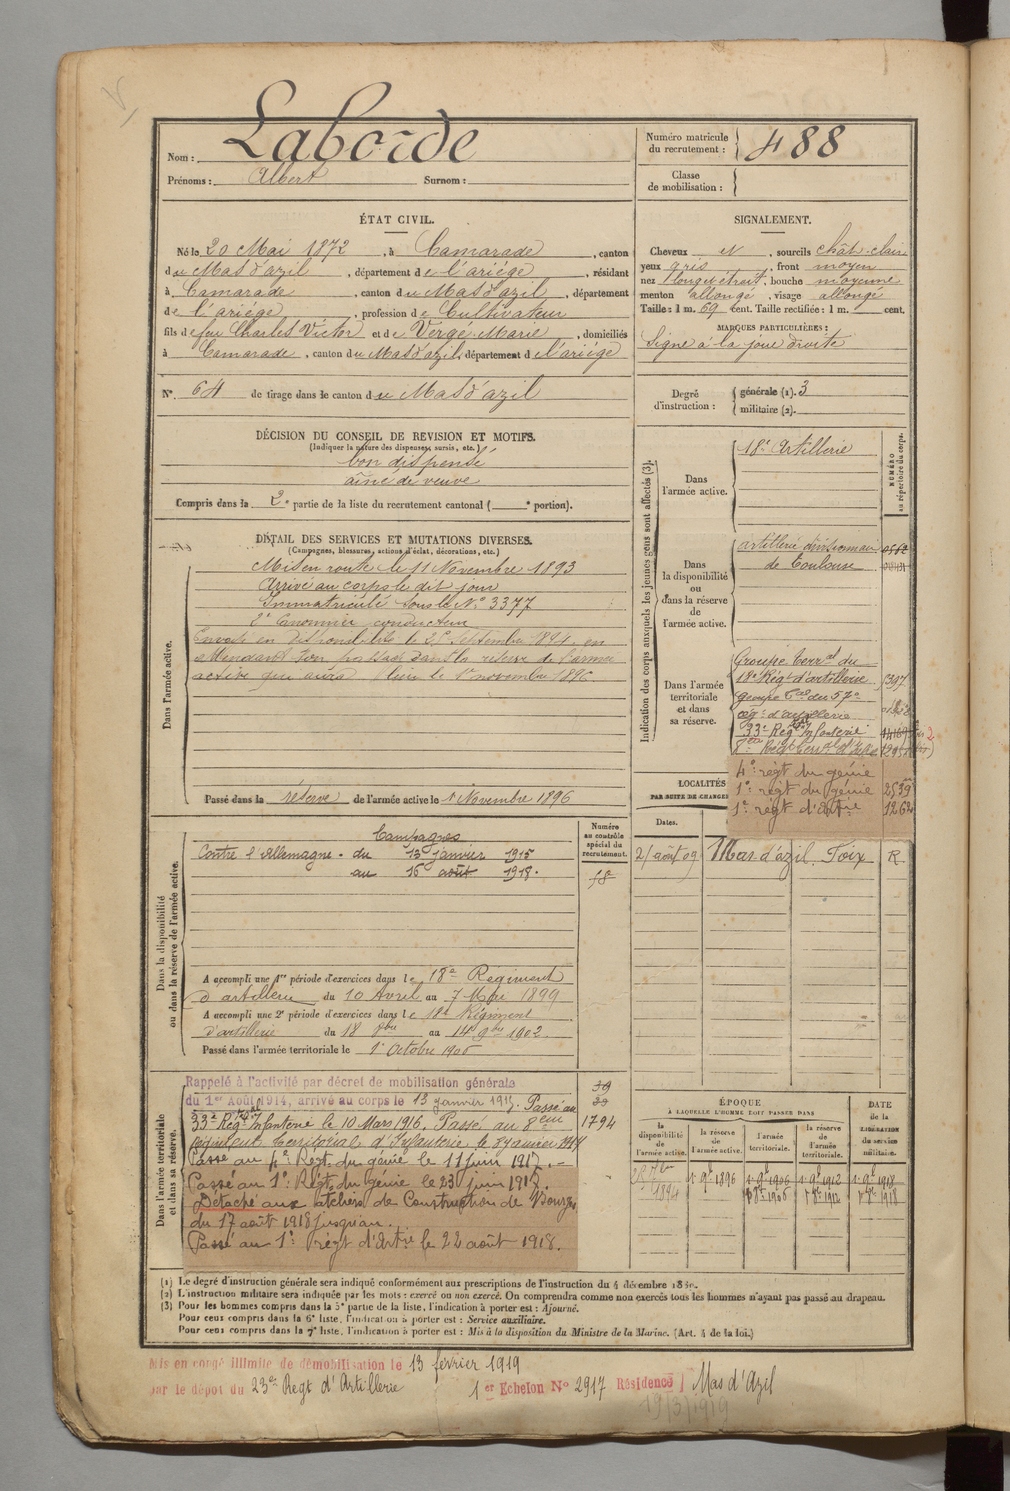 Nom : Laborde
Prénoms : Albert Surnom :
Numéro matricule du recrutement : 488
Classe de mobilisation :
ÉTAT CIVIL.
Né le 20 Mai 1872, à Camarade, canton
du Mas d'azil, département de l'ariége, résidant
à Camarade, canton du Mas d'azil, département
de l'ariége, profession de Cultivateur
fils de feu Charles Victor et de Vergé Marie, domiciliés
à Camarade, canton du Mas d'azil, département de l'ariége
N° 64 de tirage dans le canton du Mas d'azil
SIGNALEMENT.
Cheveux et, sourcils chât-clair
yeux gris, front moyen
nez long et étroit, bouche moyenne
menton allongé, visage allongé
Taille : 1 m. 69 cent. Taille rectifiée : 1 m. cent.
MARQUES PARTICULIÈRES :
Signe à la joue droite
Degré d'instruction : générale (1). 3
militaire (2).
DÉCISION DU CONSEIL DE REVISION ET MOTIFS.
(Indiquer la nature des dispenses, sursis, etc.)
bon dispensé
aîné de veuve
Compris dans la 2e partie de la liste du recrutement cantonal ( e portion).
DÉTAIL DES SERVICES ET MUTATIONS DIVERSES.
(Campagnes, blessures, actions d'éclat, décorations, etc.)
Dans l'armée active.
Mis en route le 11 Novembre 1893
Arrivé au corps le dit jour
Immatriculé sous le N° 3377
2e Canonnier conducteur
Envoyé en disponibilité le 25 septembre 1894, en
attendant son passage dans la réserve de l'armée
active qui aura lieu le 1er novembre 1896
Passé dans la réserve de l'armée active le 1 Novembre 1896
Indication des corps auxquels les jeunes gens sont affectés (3).
NUMÉRO au répertoire du corps.
Dans l'armée active.
18e Artillerie
Dans la disponibilité ou dans la réserve de l'armée active.
artillerie divisionnaire
de Toulouse
Dans l'armée territoriale et dans sa réserve.
Groupe terral du
18e Régt d'artillerie 1397
groupe tal du 57e
régt d'artillerie
33e Régt tal Infanterie
8ème Régt terral d'Infie
4e régt du génie
1e régt du génie 2539
1e régt d'artie 1262
LOCALITÉS
PAR SUITE DE CHANGE
Dates.
21 août 09 Mas d'azil Foix R.
Dans la disponibilité ou dans la réserve de l'armée active.
Numéro au contrôle spécial du recrutement.
Campagnes
Contre l'Allemagne. du 13 janvier 1915
au 16 août 1918.
A accompli une 1re période d'exercices dans le 18e Régiment
d'artillerie du 10 Avril au 7 Mai 1899
A accompli une 2e période d'exercices dans le 18e Régiment
d'artillerie du 18 8bre au 14 9bre 1902
Passé dans l'armée territoriale le 1er Octobre 1906
Dans l'armée territoriale et dans sa réserve.
Rappelé à l'activité par décret de mobilisation générale
du 1er Août 1914, arrivé au corps le 13 janvier 1915. Passé au
33e Régt tal Infanterie le 10 Mars 1916. Passé au 8ème 1794
régiment territorial d'Infanterie le 8 janvier 1917
Passé au 4e Régt du génie le 11 juin 1917.
Passé au 1e Régt du génie le 23 juin 1917.
Détaché aux ateliers de Construction de Bourges
du 17 août 1918 jusqu'au
Passé au 1e régt d'artie le 22 août 1918.
ÉPOQUE
A LAQUELLE L'HOMME DOIT PASSER DANS
DATE de la LIBÉRATION du service militaire.
la disponibilité de l'armée active.
la réserve de l'armée active.
l'armée territoriale.
la réserve de l'armée territoriale.
25 7bre 1894 1er 9bre 1896 1er 9bre 1906 1er 9bre 1912 1er 9bre 1918
(1) Le degré d'instruction générale sera indiqué conformément aux prescriptions de l'instruction du 4 décembre
(2) L'instruction militaire sera indiquée par les mots : exercé ou non exercé. On comprendra comme non exercés tous les hommes n'ayant pas passé au drapeau.
(3) Pour les hommes compris dans la 5e partie de la liste, l'indication à porter est : Ajourné.
Pour ceux compris dans la 6e liste, l'indication à porter est : Service auxiliaire.
Pour ceux compris dans la 7e liste, l'indication à porter est : Mis à la disposition du Ministre de la Marine. (Art. 4 de la loi.)
Mis en congé illimité de démobilisation le 13 fevrier 1919
par le dépot du 23e Regt d'Artillerie 1er Echelon N° 2917 Résidence Mas d'Azil
19/3/1919